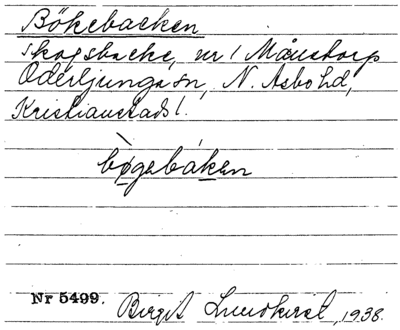 Bökebacken
skogsbacke, nr 1 Månstorp
Oderljunga sn, N. Åsbo hd,
Kristianstads l.
bøgebáken
Nr 5499. Birgit Lundkvist, 1938.